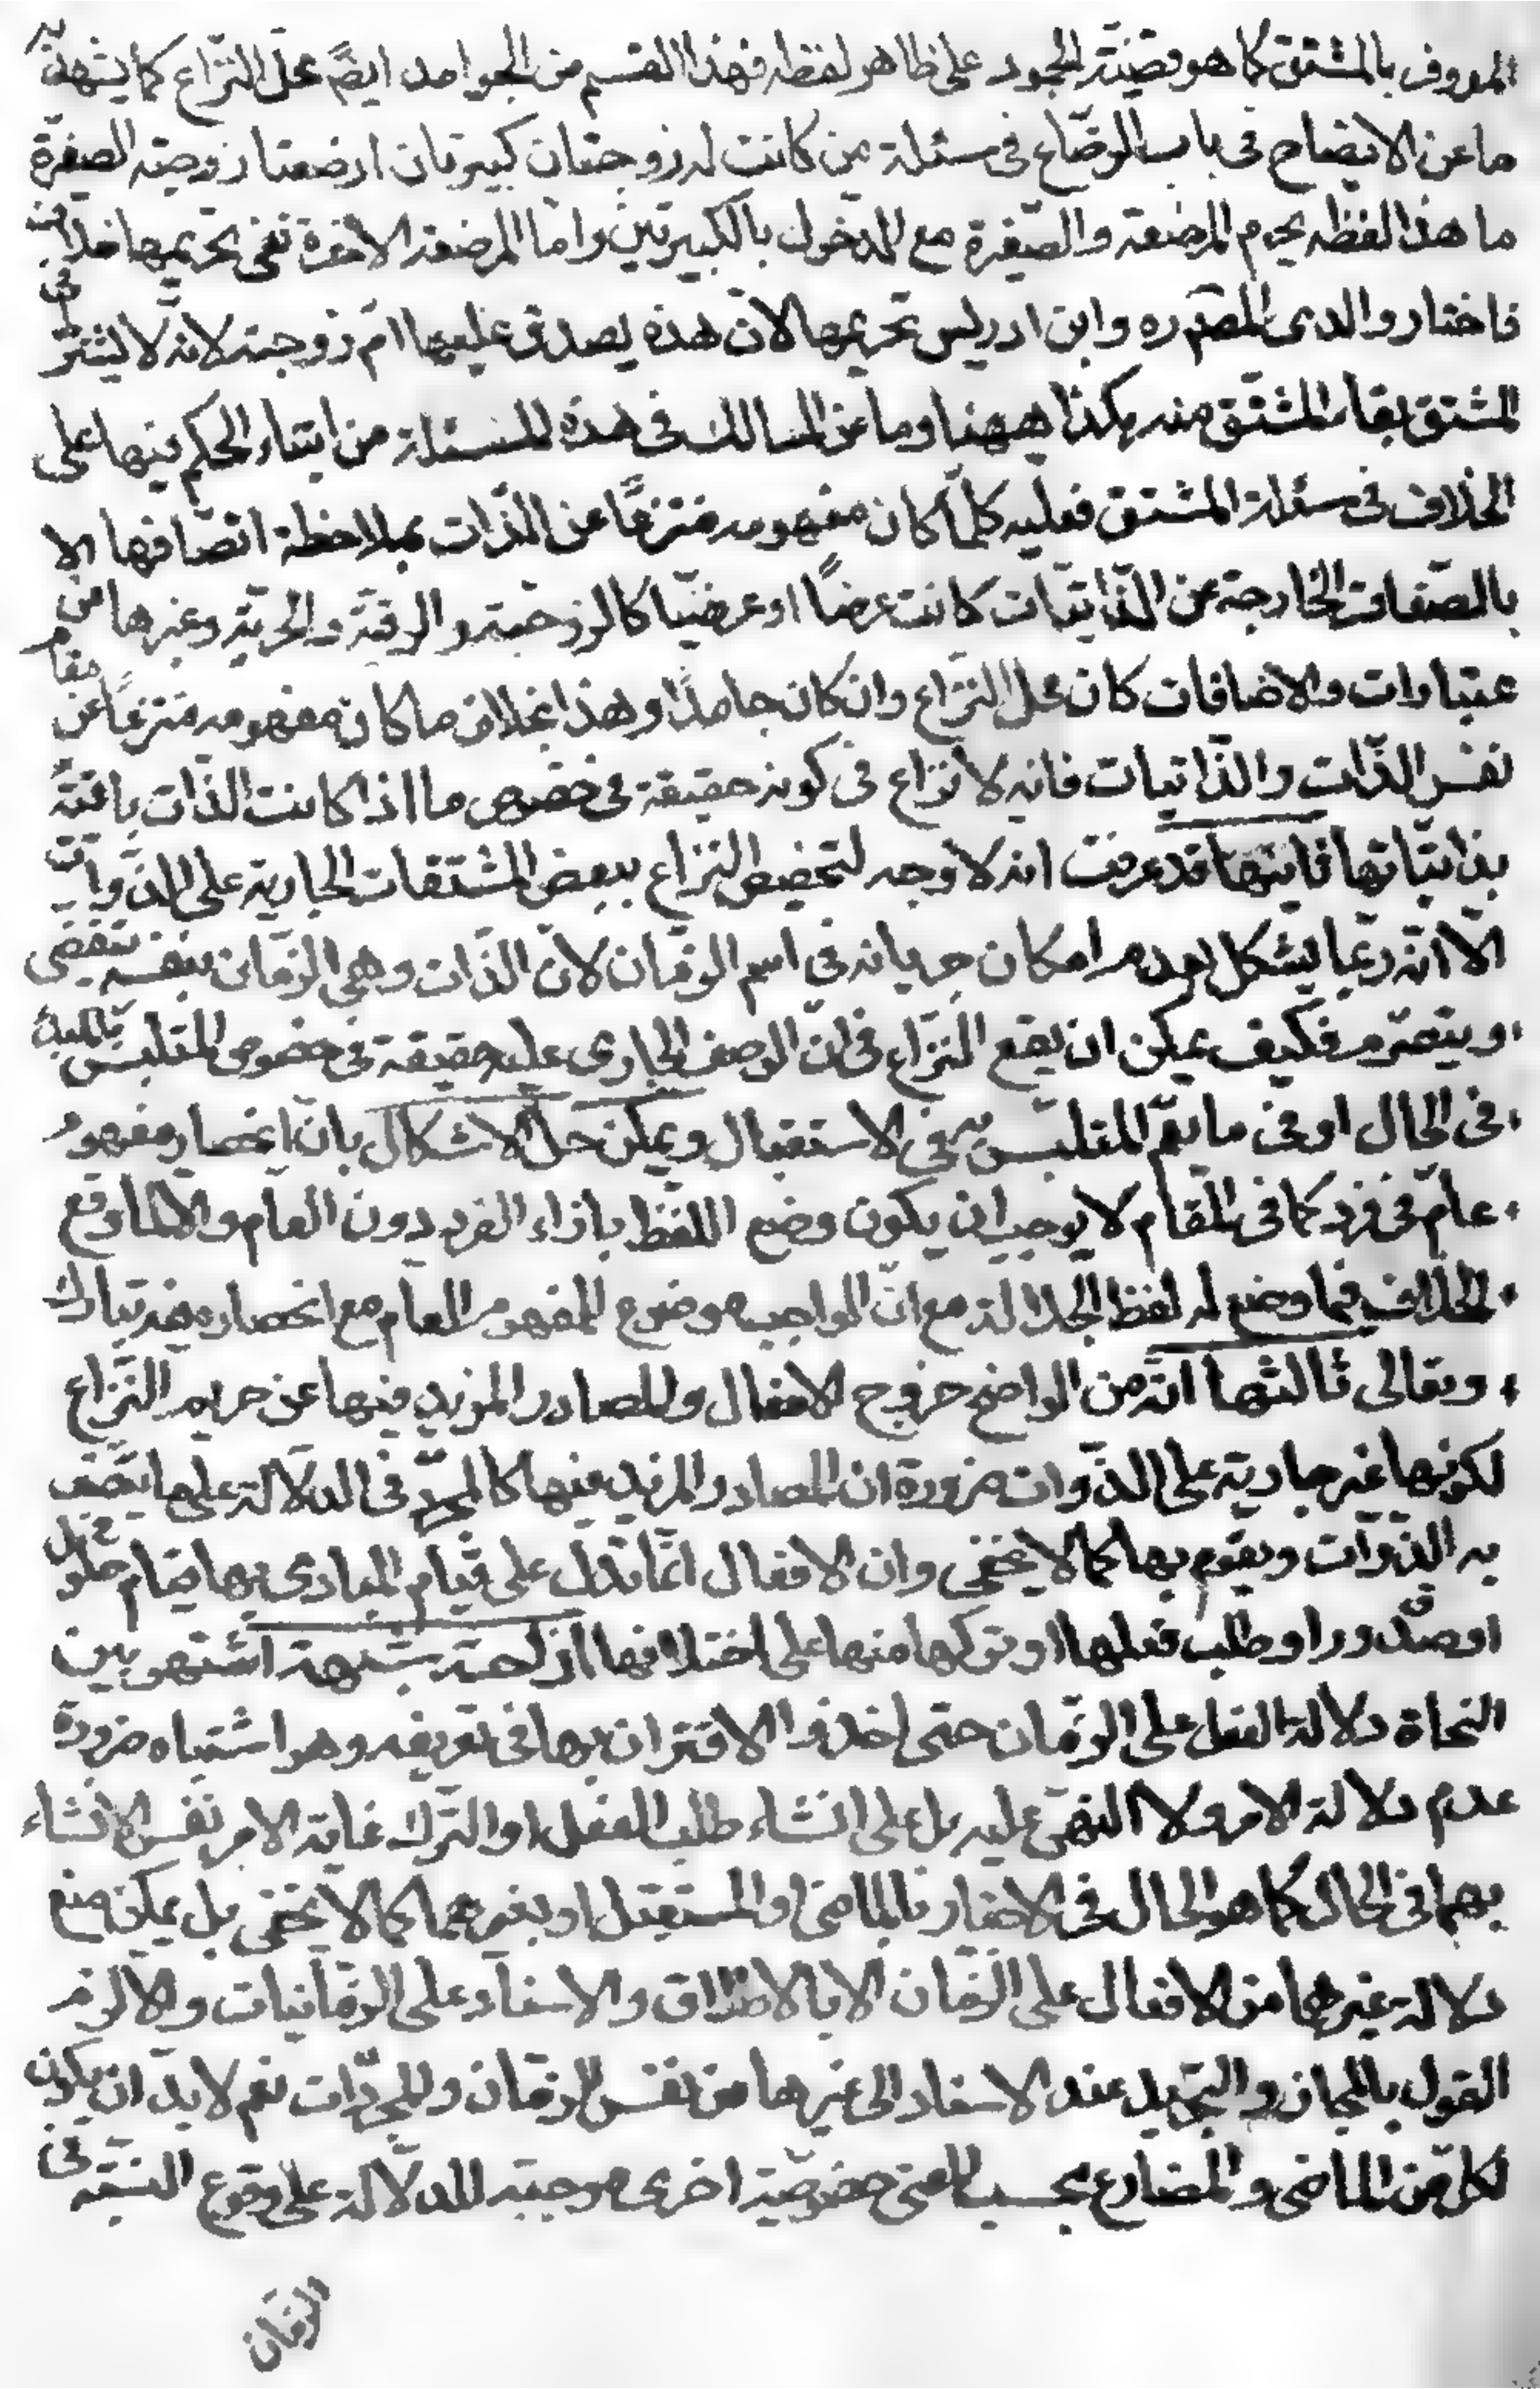 المعروف بالمشتق كما هو قضيّة الجمود على ظاهر لفظه فهذا القسم من الجوامد ايضً محل النّزاع كما يشهد به
ما عن الايضاح فى باب الرضّاع فى مسئلة من كانت له زوجتان كبيرتان ارضعتا زوجته الصغيرة
ما هذا لفظه يحرم المرضعة والصّغيرة مع الدّخول بالكبيرتين وامّا المرضعة الاخرة ففى تحريمها خلاف
فاختار والدى المصّ ره وابن ادريس تحريمها لانّ هذه يصدق عليها امّ زوجته لانّه لا يشترط فى
المشتق بقاء المشتّق منه هكذا ههنا وما عن المسالك فى هذه المسئلة من ابتناء الحكم فيها على
الخلاف فى مسئلة المشتق فعليه كلّما كان مفهومه منتزعًا عن الذّات بملاحظة اتصّافها
بالصّفات الخارجة عن الذّاتيّات كانت عرضًا او عرضيّا كالزوجيّة والرقيّة والحريّة وغيرها من الا
عتبارات والاضافات كان محل النّزاع وان كان جامدًا وهذا بخلاف ما كان مفهومه منتزعًا عن مقام
نفس الذّات والذّاتيات فانه لا نزاع فى كونه حقيقة فى خصوص ما اذا كانت الذّات باقيّة
بذاتيّاتها ثانيها قد عرفت انه لا وجه لتخصيص النزاع ببعض المشتقات الجارية على الذّوات
الّا انّه ربّما يشكل بعدم امكان جريانه فى اسم الزمّان لانّ الذّات وهى الزمّان بنفسه ينقضى
ويتصّرم فكيف يمكن ان يقع النّزاع فى انّ الوصف الجارى عليه حقيقة فى خصوص المتلبّس بالمبدء
فى الحال او فى ما يعمّ المتلبّس به فى الاستقبال ويمكن حلّ الاشكال بانّ انحصار مفهوم
عامّ فى فرد كما فى المقام لا يوجب ان يكون وضع اللفظ بازاء الفرد دون العام والّا لما وقع
الخلاف فيما وضع له لفظ الجلالة مع انّ الواجب موضوع للمفهوم العام مع انحصاره فيه تبارك
وتعالى ثالثها انّه من الواضح خروج الافعال والمصادر المزيد فيها عن حريم النّزاع
لكونها غير جارية على الذّوات ضرورة ان المصادر المزيد فيها كالمجرّد فى الدّلالة على ما يتّصف
به الذّوات ويقوم بها كما لا يخفى وان الافعال انّما تدلّ على قيام المبادى بها قيام حلول
او صدور او طلب فعلها او تركها منها على اختلافها ازاحة شبهة اشتهر بين
النحاة دلالة الفعل على الزمّان حتى اخذوا الاقتران بها فى تعريفه وهو اشتباه ضرورة
عدم دلالة الامر ولا النهى عليه بل على انشاء طلب الفعل او التّرك غاية الامر نفس الانشاء
بهما فى الحال كما هو الحال فى الاخبار بالماضى او المستقبل او بغيرهما كما لا يخفى بل يمكن منع
دلالة غيرهما من الافعال على الزّمان الا بالاطلاق والاسناد على الزمّانيات والا لزم
القول بالمجاز والتجريد عند الاسناد الى غيرها من نفس الزمّان والمجرّدات نعم لا يبدّ ان يكون
لكلّ من الماضى والمضارع بحسب المعنى خصوصيّة اخرى موجبة للدّلالة على وقوع النسبّة فى
الزمّان